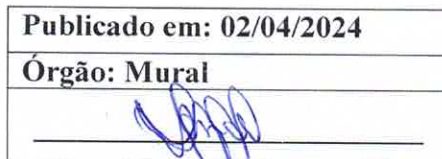 Publicado em: 02/04/2024
Órgão: Mural